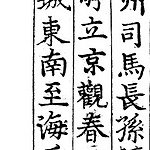 州司馬長孫
立京觀春
城東南至海